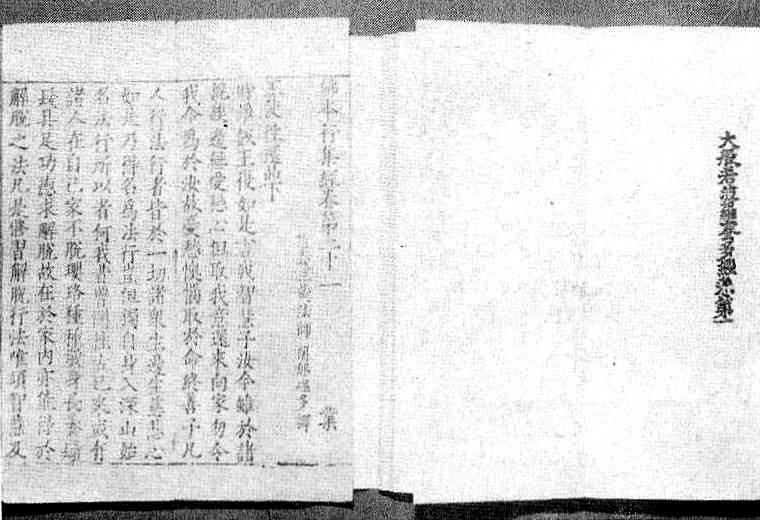 大般若第一
佛本行集經卷第二十一 業
法師闍那崛多譯
王使往還品下
時淨飯王復如是言我智慧子汝今雖於諸
親族邊無愛戀心但取我意還來向家勿令
我今為於汝故憂愁懊惱取於命終善子凡
人行法行者皆於一切諸衆生邊生慈悲心
如是乃得名為法行豈但獨自身入深山始
名法行所以者何我昔曾聞往古已來或有
諸人在自己家不脫瓔珞種種嚴身長養鬚
具足功德求解脫故在於家內亦能得於
解脫之法凡是修習解脫行法唯須智慧及